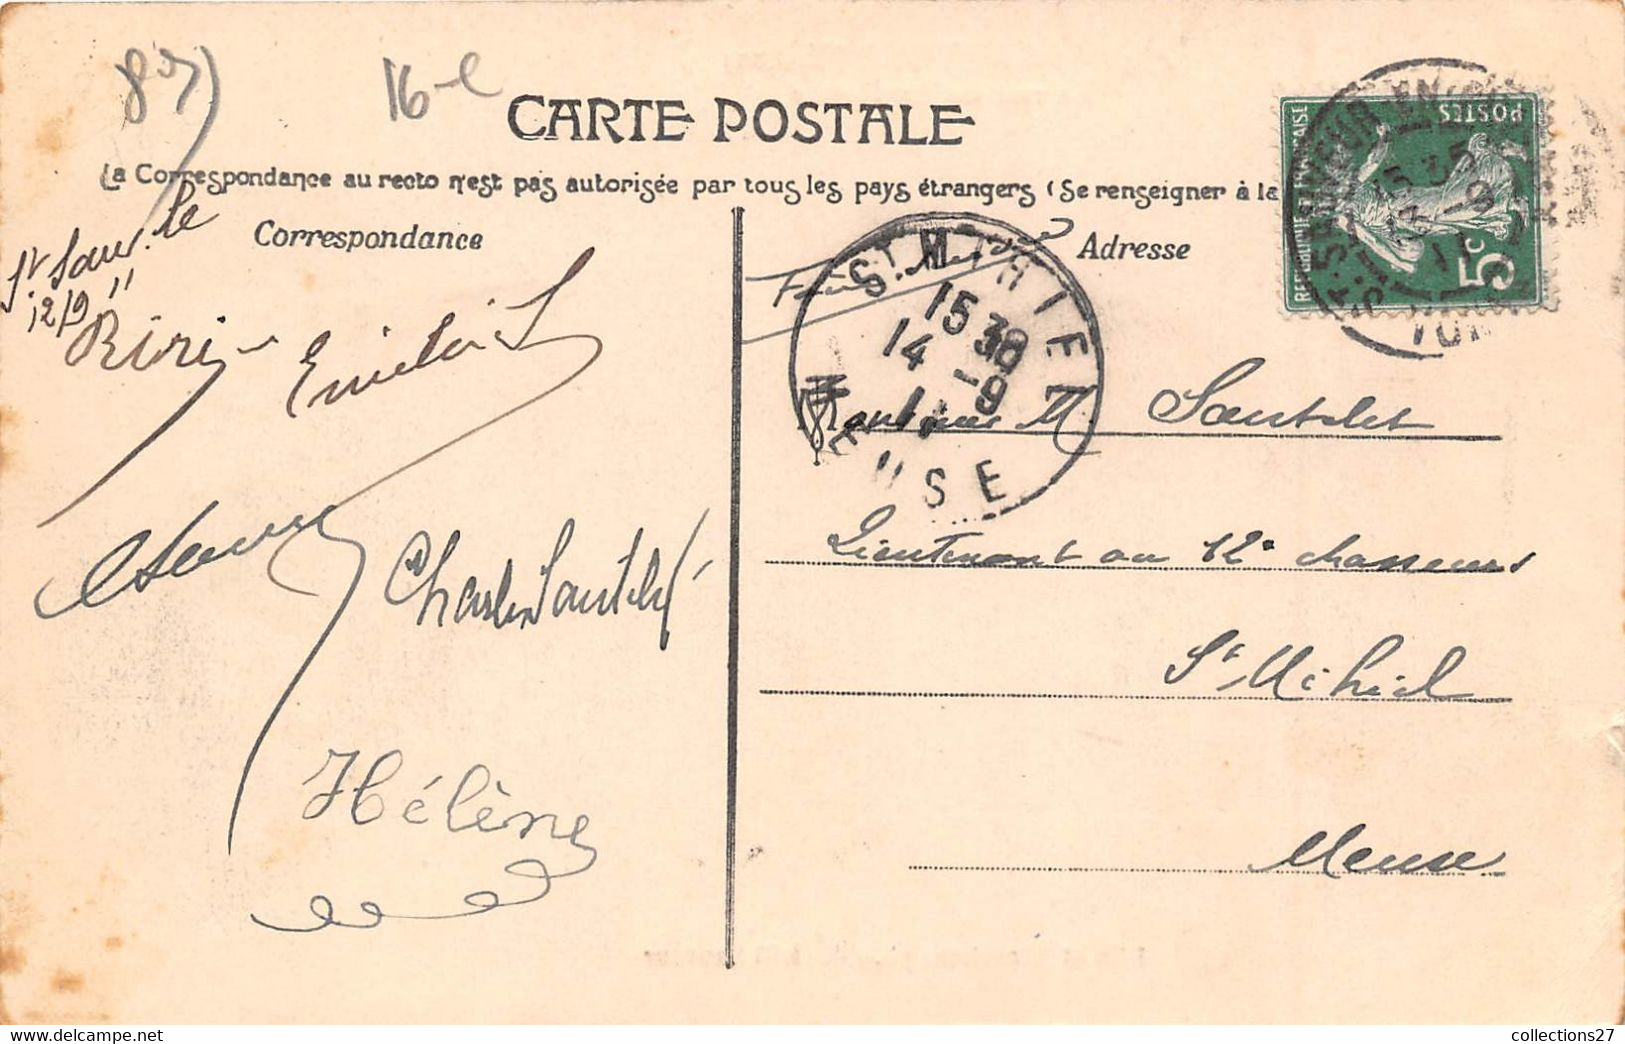 16-e
CARTE POSTALE
La Correspondance au recto n'est pas autorisée par tous les pays étrangers (Se renseigner à la
Correspondance
Adresse
St Sauv. le
12/9 11
Riri
Charles Sautelet
Hélène
ST. MIHIEL
15 30
14 -9
11
MEUSE
REPUBLIQUE FRANÇAISE
POSTES
5c
ST SAUVEUR-EN-
15 35
-9
11
Monsieur M Sautelet
Lieutenant au 12e chasseurs
St. Mihiel
Meuse
collections27